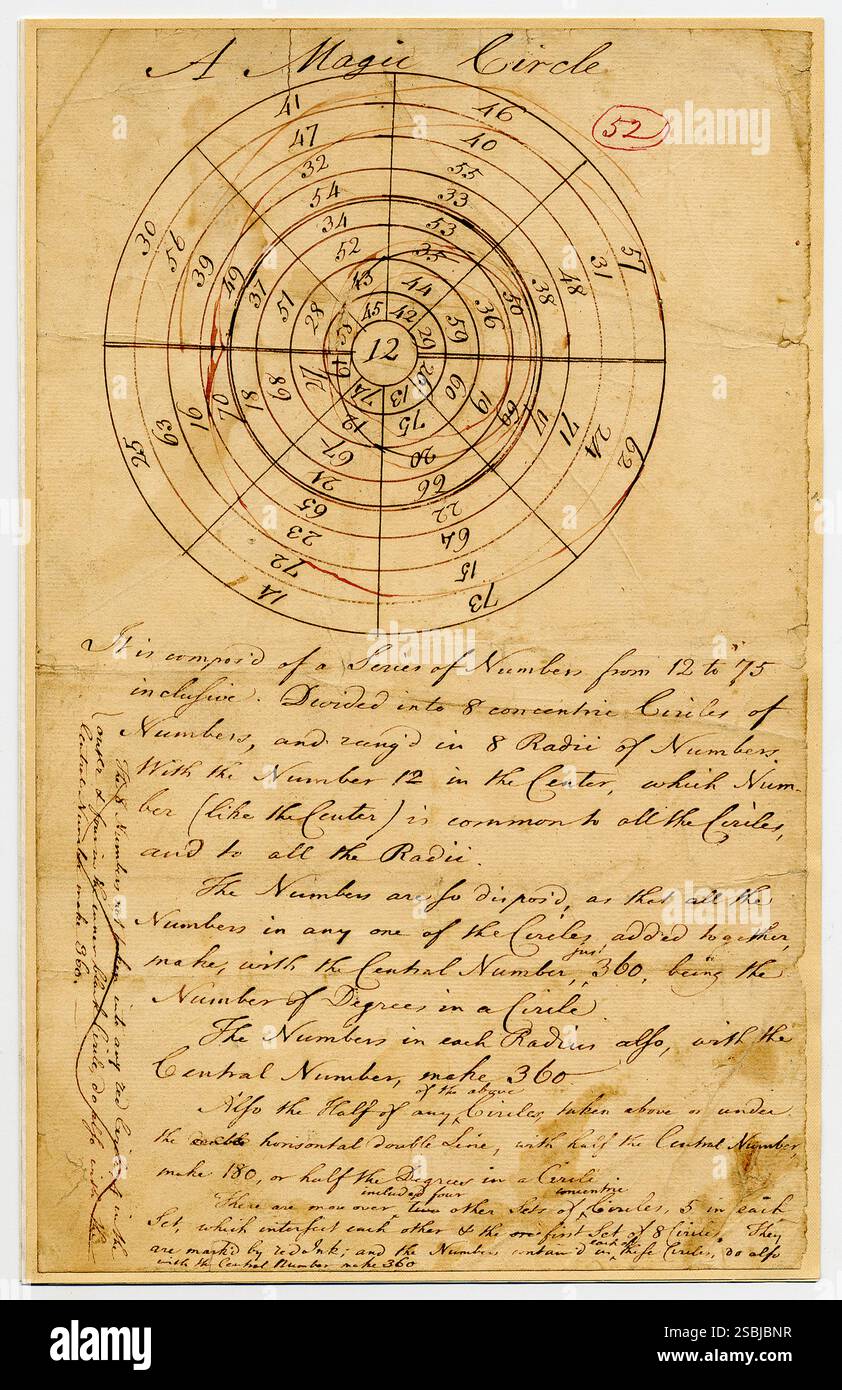 A Magic Circle
52
41 46
47 40
32 55
54 33
34 53
52 35
43 44
45 42
30 56 39 49 37 51 28 58
29 59 36 50 38 48 31 57
12
25 63 16 70 18 68 27 61
26 60 19 69 17 71 24 62
74 13
12 75
67 20
21 66
65 22
23 64
72 15
14 73
It is compos'd of a Series of Numbers from 12 to 75
inclusive. Divided into 8 concentric Circles of
Numbers, and rang'd in 8 Radii of Numbers
With the Number 12 in the Center, which Num-
ber (like the Center) is common to all the Circles,
and to all the Radii.
The Numbers are so dispos'd, as that all the
Numbers in any one of the Circles, added together,
make, with the Central Number, just 360, being the
Number of Degrees in a Circle
The Numbers in each Radius also, with the
Central Number, make 360
Also the Half of any of the above Circles, taken above or under
the double horisontal double Line, with half the Central Number
make 180, or half the Degrees in a Circle
There are moreover included four two other Sets of concentric Circles, 5 in each
Set, which intersect each other & the first Set of 8 Circles. They
are mark'd by red Ink; and the Numbers contain'd in each of these Circles, do also
with the Central Number make 360
The 8 Numbers, not taken into any red Circle, 4 in the
outer & four in the inner black Circle, do also with the
Central Number make 360.
alamy
a
Image ID: 2SBJBNR
www.alamy.com